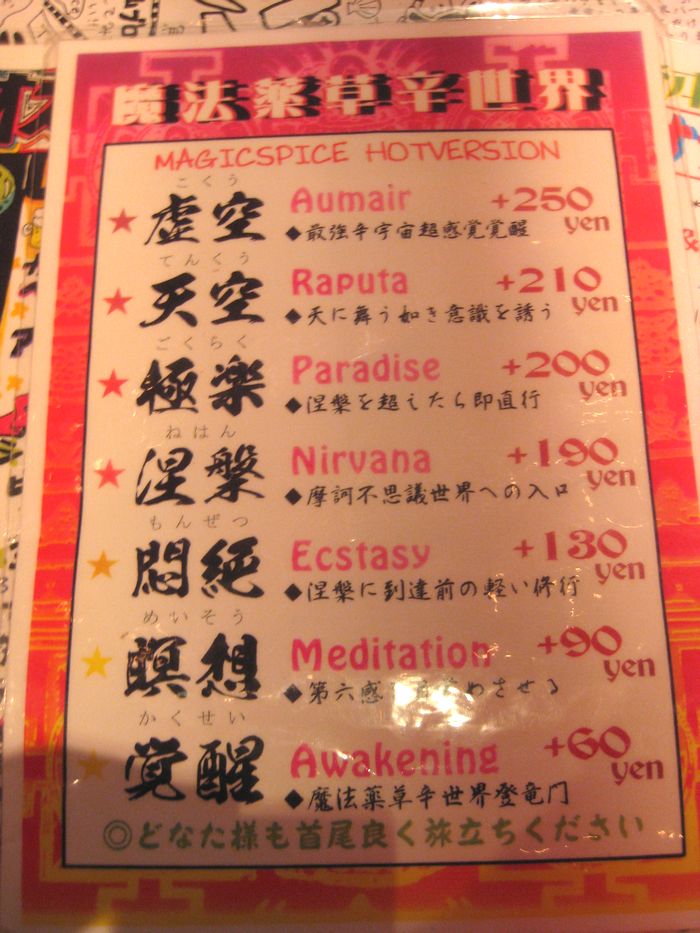 魔法薬草辛世界
MAGICSPICE HOTVERSION
こくう
★虚空 Aumair +250 yen
◆最強辛宇宙超感覚覚醒
てんくう
★天空 Raputa +210 yen
◆天に舞う如き意識を誘う
ごくらく
★極楽 Paradise +200 yen
◆涅槃を超えたら即直行
ねはん
★涅槃 Nirvana +190 yen
◆摩訶不思議世界への入口
もんぜつ
★悶絶 Ecstasy +130 yen
◆涅槃に到達前の軽い修行
めいそう
★瞑想 Meditation +90 yen
◆第六感 めさせる
かくせい
★覚醒 Awakening +60 yen
◆魔法薬草辛世界登竜門
◎どなた様も首尾良く旅立ちください